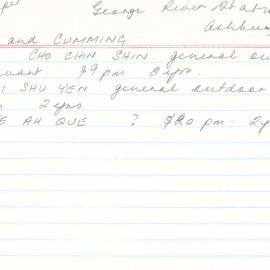 George River Stat
Ashbu
and CUMMING
CHO CHIN SHIN general ou
vant 9 pm 0 yrs.
I SHU YEN general outdoor
2 yrs
E AH QUE ? $20 pm 2y